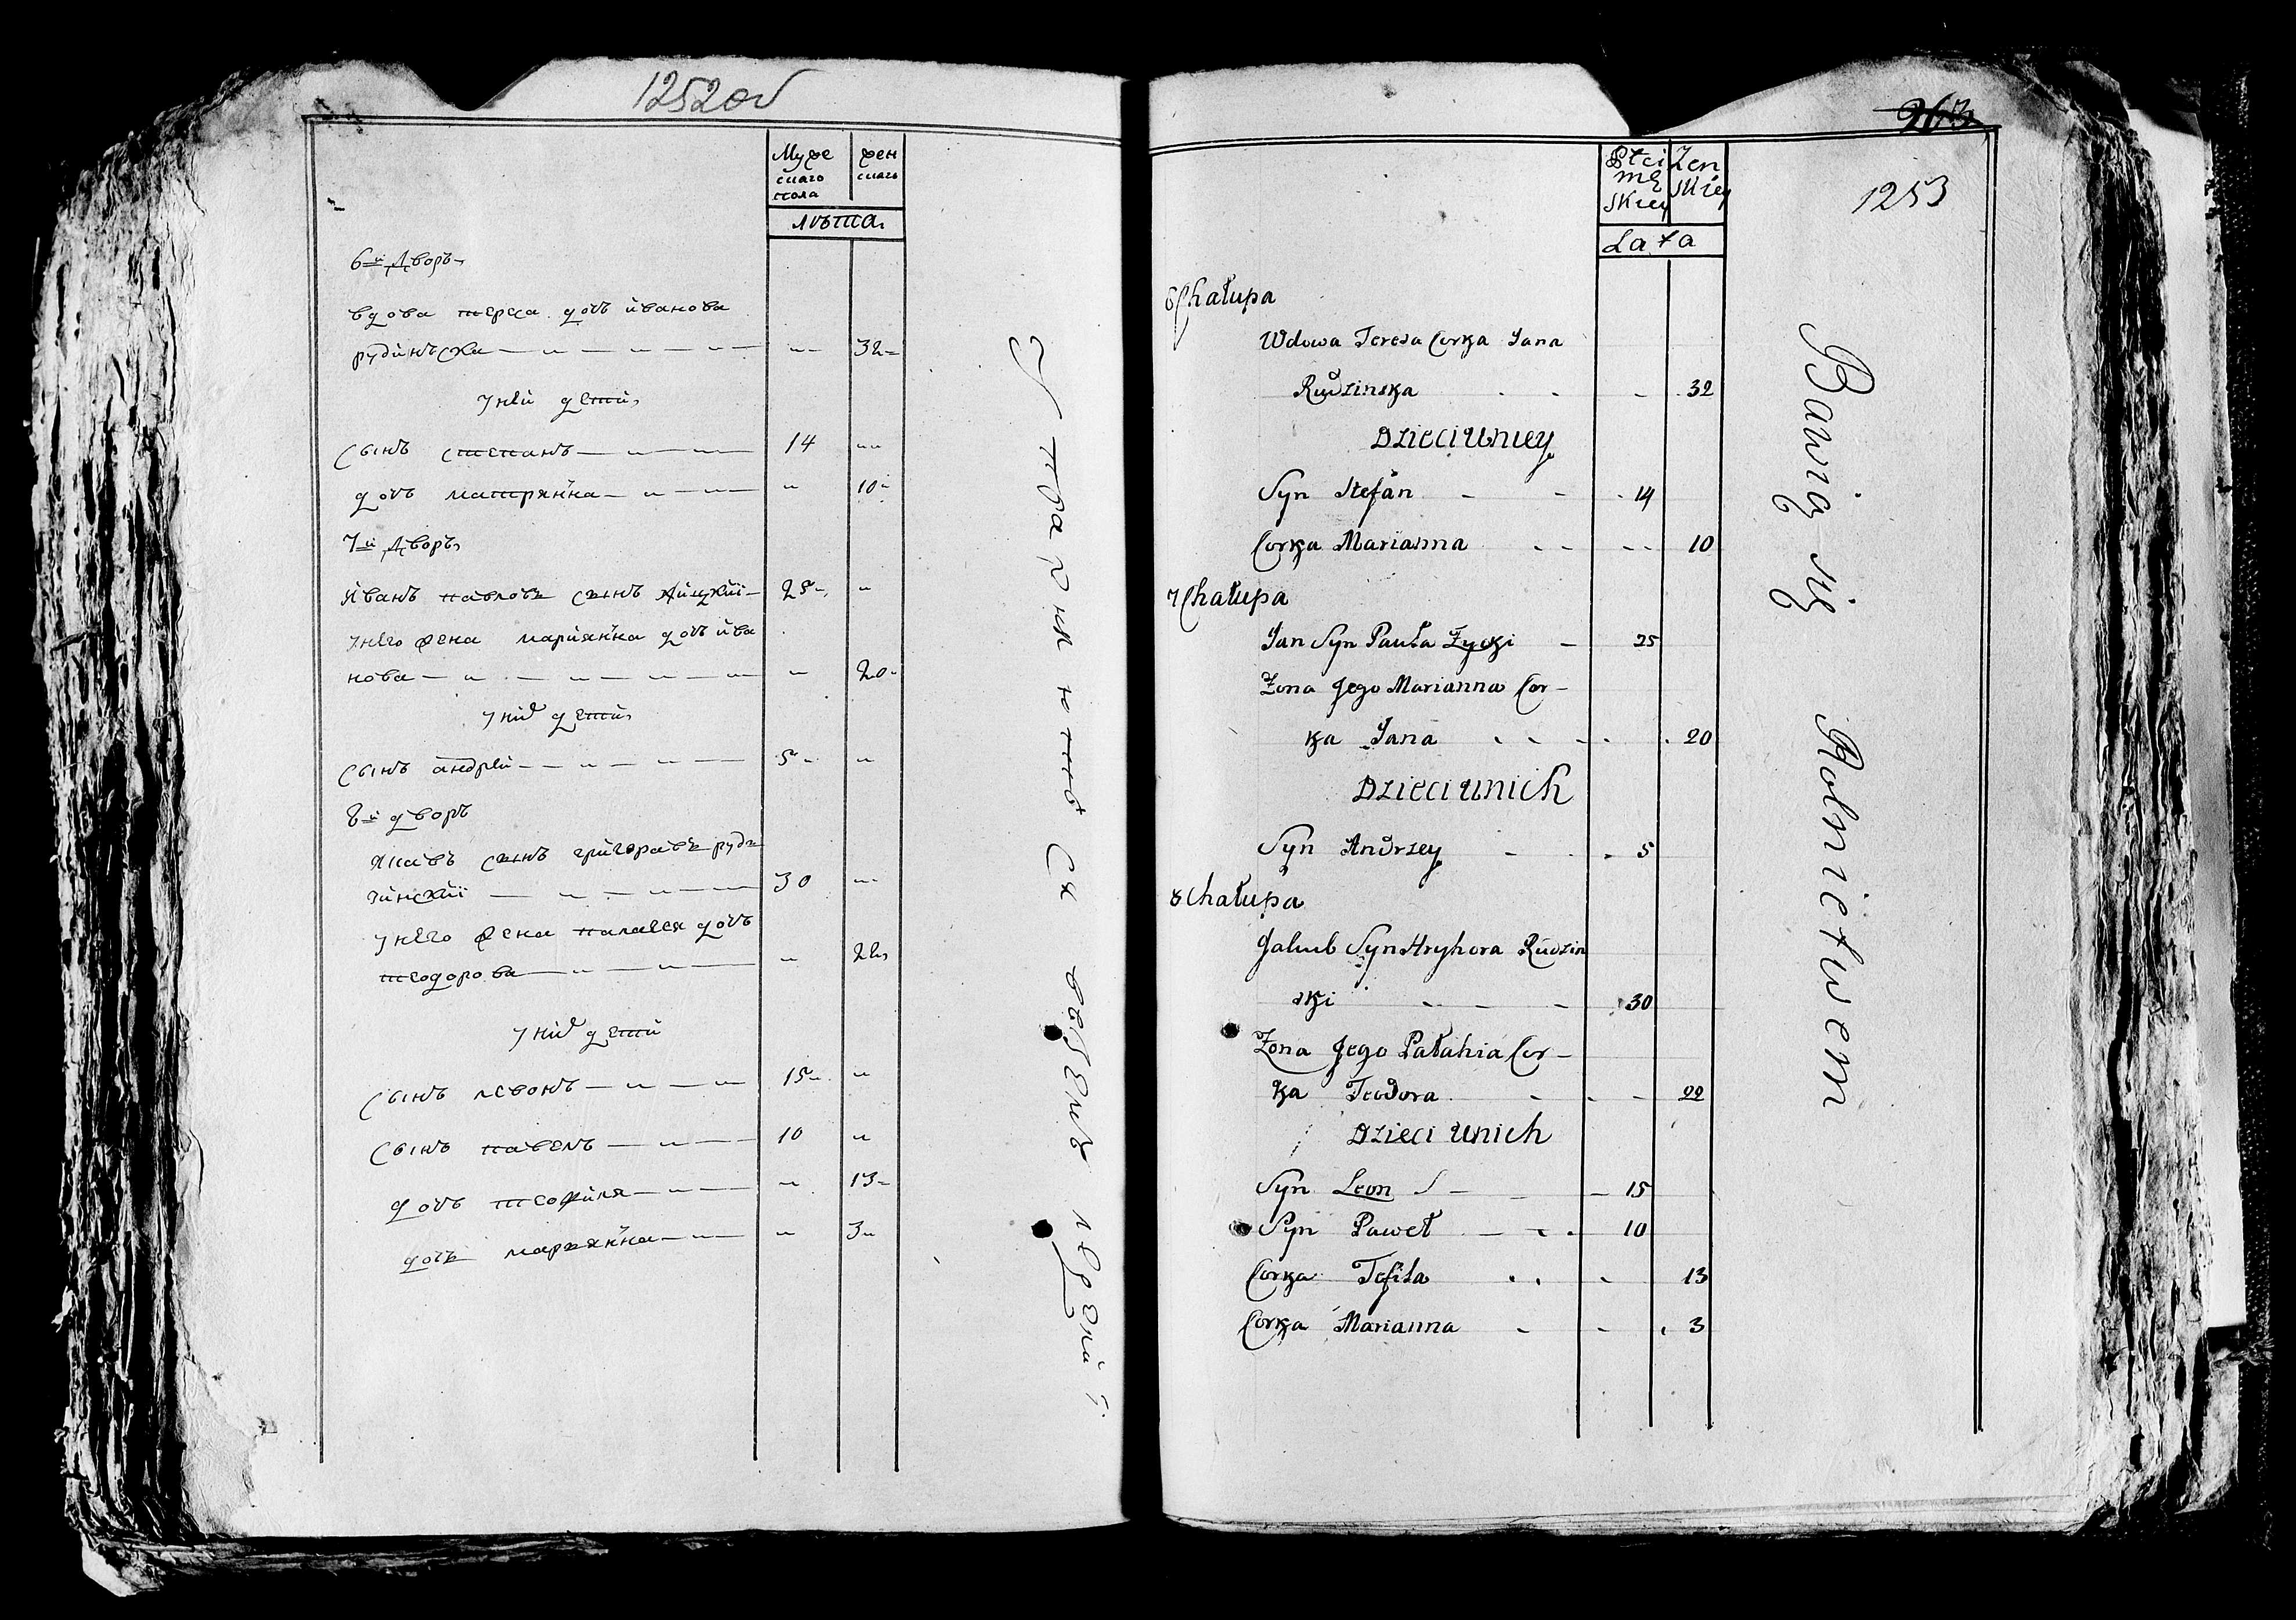 1252об
Муже
скаго
пола
жен
скаго
лѣта
6й дворъ
вдова тереса дочь иванова
рудинъска 32
у ней дети
сынъ степанъ 14
дочь матрянна 10
7й дворъ
иванъ павловъ сынъ 25
у него жена мариянна дочь ива
нова 20
у них дети
сынъ андрей 5
8й дворъ
яковъ сынъ григоравъ рудъ
зинский 30
у него жена палагея дочь
теодорова 22
у них дети
сынъ левонъ 15
сынъ павелъ 10
дочь теофиля 13
дочь марьянна 3
263
1253
Płci
mę
skiey
Żen
skiey
Lata
6 Chałupa
Wdowa Teresa Corka Jana
Rudzinska 32
Dzieci u niey
Syn Stefan 14
Corka Marianna 10
7 Chałupa
Jan Syn Pawła Zycki 25
Zona Jego Marianna Cor-
ka Jana 20
Dzieci u nich
Syn Andrzey 5
8 Chałupa
Jakub Syn Hryhora Rudzin
ski 30
Zona Jego Pałahia Cor-
ka Teodora 22
Dzieci u nich
Syn Leon 15
Syn Paweł 10
Corka Tefila 13
Corka Marianna 3
Bawią się Rolnictwem